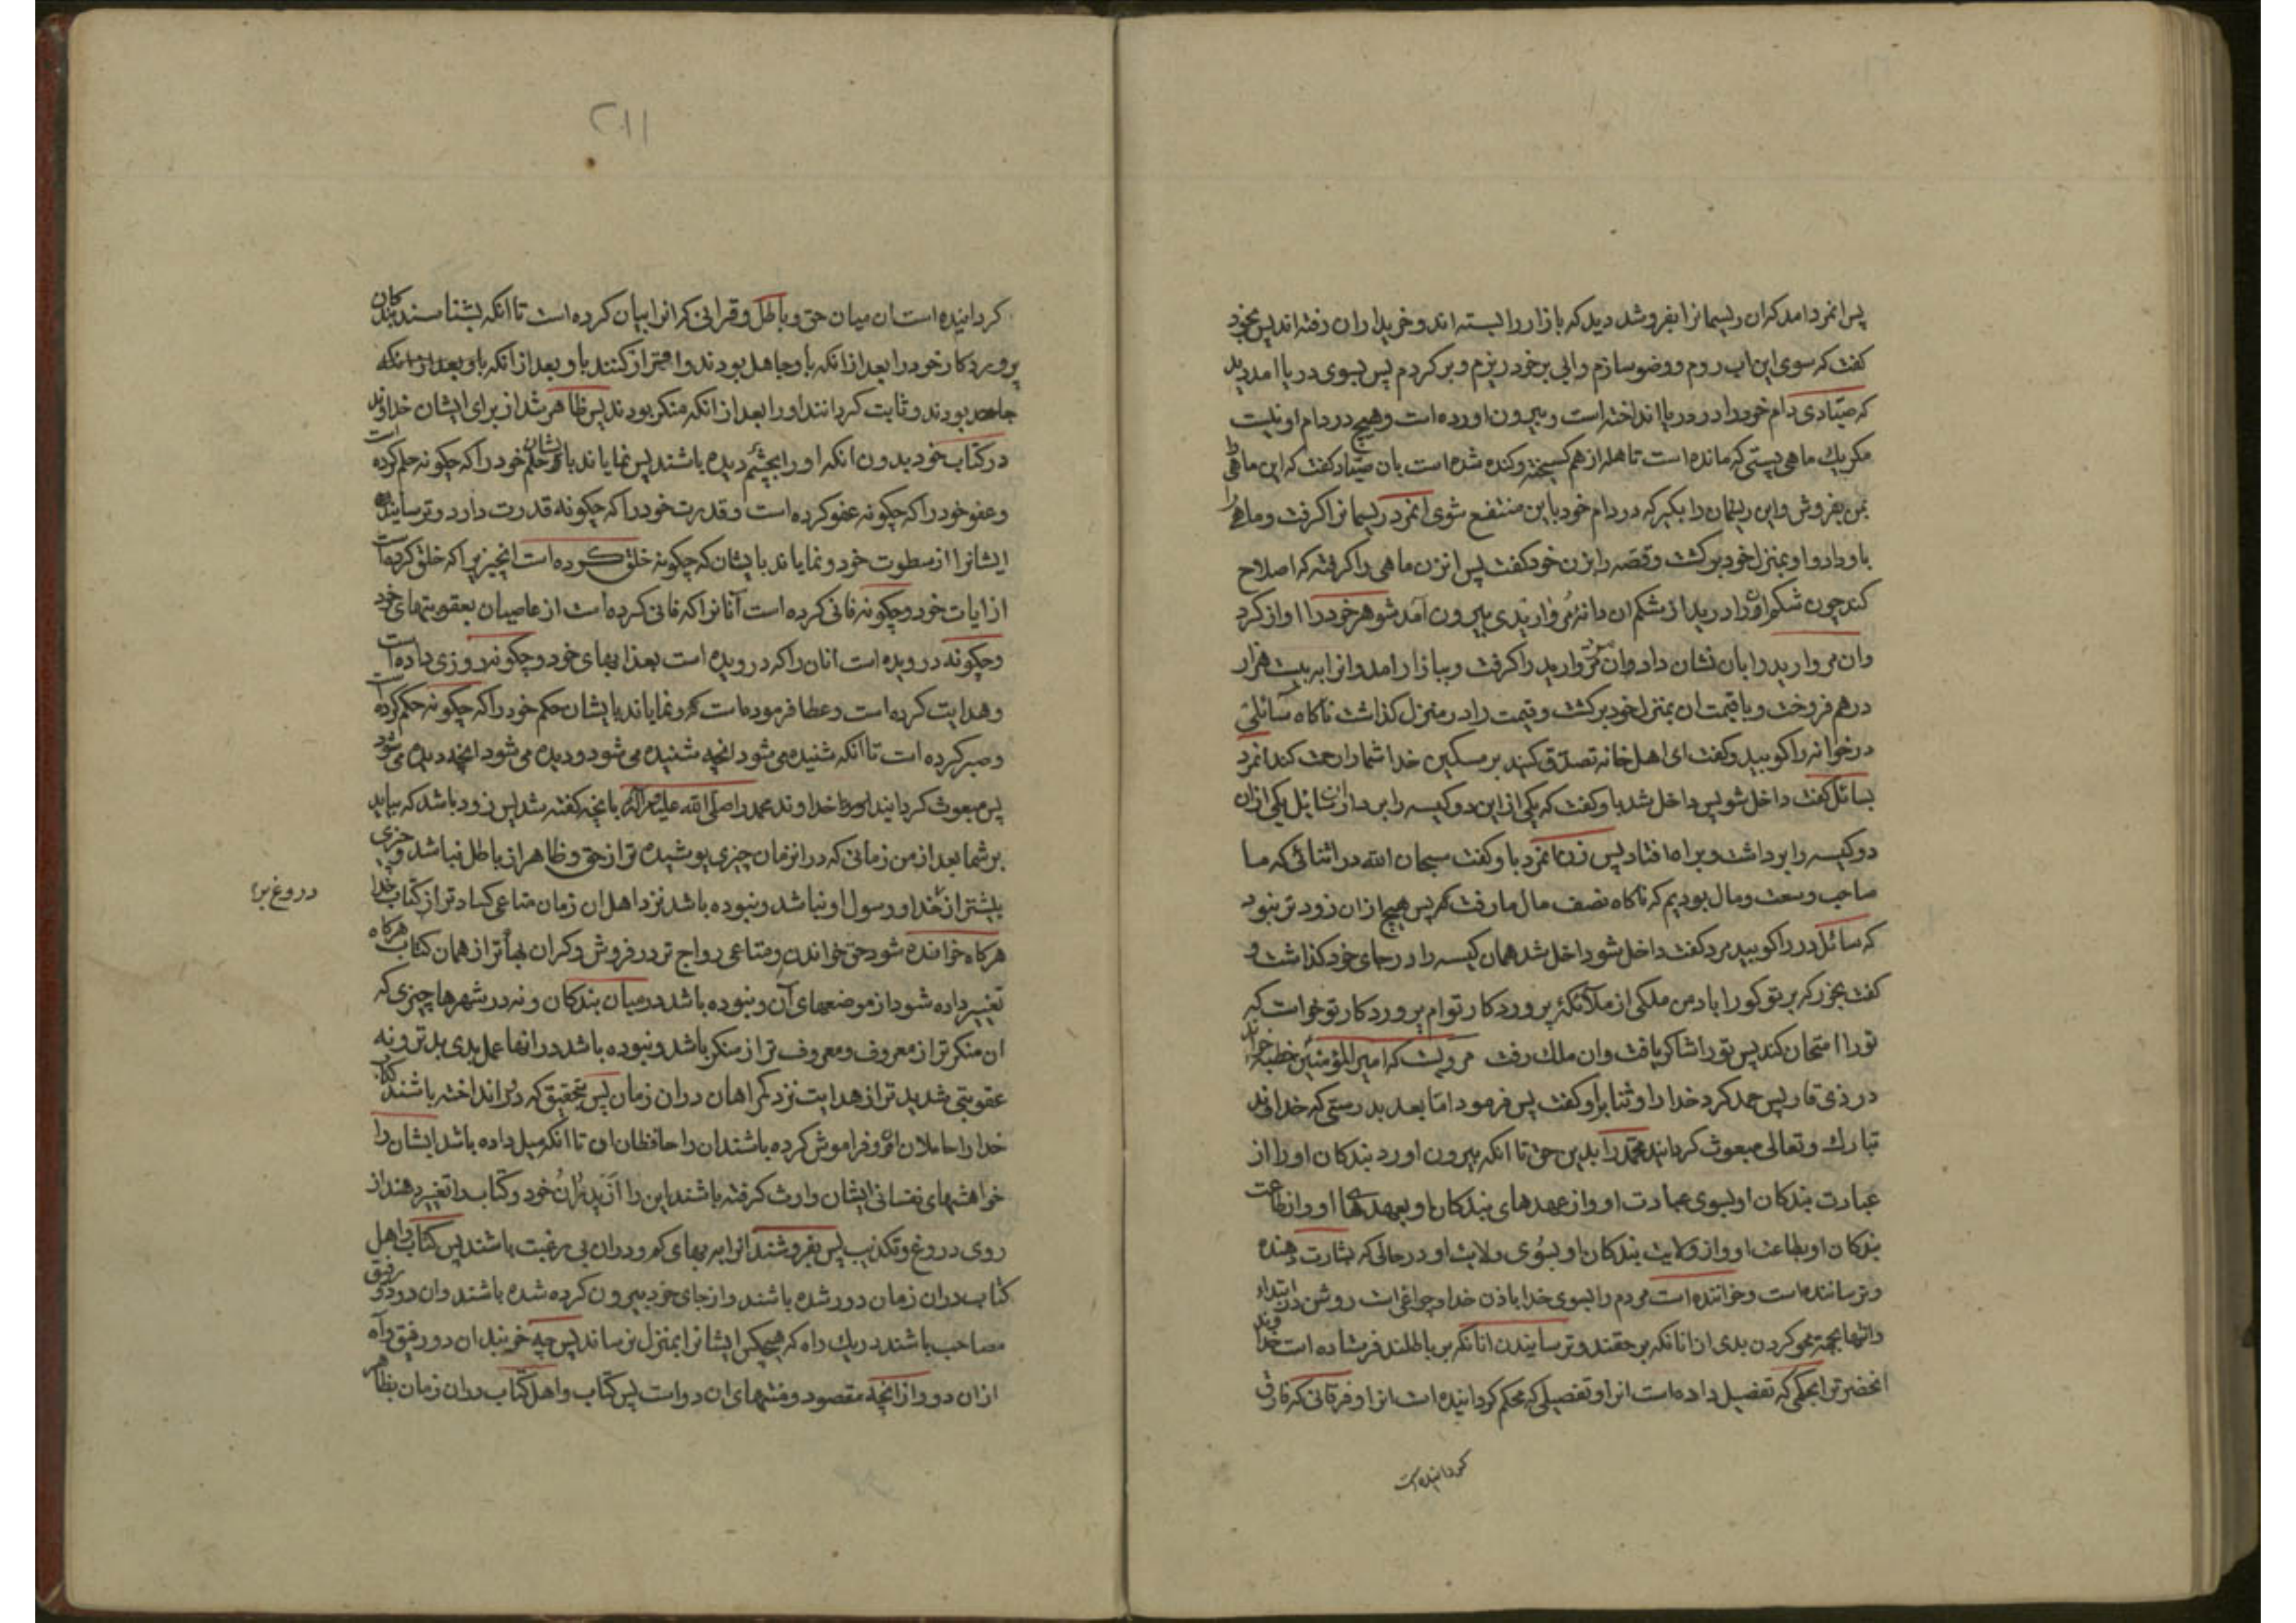 پس انمرد امد که ان ریسمانرا بفروشد دید که بازار را بسته اند و خریداران رفته اند پس بخود
گفت که سوی این اب روم و وضو سازم و ابی بر خود ریزم و برگردم پس بسوی دریا امد دید
که صیّادی دام خود را در دریا انداخته است و بیرون اورده است و هیچ در دام او نیست
مگر یك ماهی پستی که مانده است تا هله از هم گسیخته و کنده شده است بان صیّاد گفت که این ماهی را
بمن بفروش و این ریسمان را بگیر که در دام خود باین منتفع شوی انمرد ریسمانرا گرفت و ماهی را
باو داد و او بمنزل خود برگشت و قصه را بزن خود گفت پس انزن ماهی را گرفته که اصلاح
کند چون شکم او را درید از شکم ان دانهٔ مرواریدی بیرون آمد شوهر خود را اواز کرد
وان مروارید را بان نشان داد وان مرد مروارید را گرفت و ببازار امد وانرا به بیست هزار
درهم فروخت و با قیمت ان بمنزل خود برگشت و قیمت را در منزل گذاشت ناگاه سائلی
در خانه را کوبید و گفت ای اهل خانه تصدّق کنید بر مسکین خدا شما را رحمت کند انمرد
بسائل گفت داخل شو پس داخل شد باو گفت که یکی از این دو کیسه را بردار ان سائل یکی از ان
دو کیسه را برداشت و براه افتاد پس زن انمرد باو گفت سبحان الله در اثنائی که ما
صاحب وسعت و مال بودیم که ناگاه نصف مال ما رفت پس هیچ از ان زود تر نبود
که سائل در را کوبید مرد گفت داخل شو داخل شد همان کیسه را در جای خود گذاشت و
گفت بخور که بر تو گورا باد من ملکی از ملآئکهٔ پروردکار توام پروردکار تو خواست که
تو را امتحان کند پس تو را شاکر یافت وان ملك رفت مرویست که امیر المؤمنین خطبه خواند
در ذی قار پس حمد کرد خدا را و ثنا بر او گفت پس فرمود امّا بعد بدرستی که خداوند
تبارك و تعالی مبعوث گردانید محمّد را بدین حق تا انکه بیرون اورد بندکان او را از
عبادت بندکان او بسوی عبادت او و از عهدهای بندکان او بعهدهای او و از طاعت
بندکان او بطاعت او و از ولایت بندکان او بسوی ولایت او در حالی که بشارت دهنده
و ترساننده است و خواننده است مردم را بسوی خدا باذن خدا و چراغی است روشن در ابتداء
وانتها بجهة محو کردن بدی از انانکه بر حقند و ترسانیدن انانکه بر باطلند فرستاده است خداوند
انحضرترا بحکمی که تفضیل داده است انرا و تفصیلی که محکم گردانیده است انرا و فرقانی که فارق
گردانیده است
۲۱۱
گردانیده است ان میان حق و باطل و قرانی که انرا بیان کرده است تا انکه بشناسند بندگان
پروردکار خود را بعد از انکه باو جاهل بودند و اقرار کنند باو بعد از انکه باو بعد از انکه
جاحد بودند و ثابت گردانند او را بعد از انکه منکر بودند پس ظاهر شد از برای ایشان خداوند
در کتاب خود بدون انکه او را بچشم دیده باشند پس نمایاند بایشان حلم خود را که چگونه حلم کرده است
و عفو خود را که چگونه عفو کرده است و قدرت خود را که چگونه قدرت دارد و ترسانیده
ایشانرا از سطوت خود و نمایاند بایشان که چگونه خلق کرده است انچیزیرا که خلق کرده است
از ایات خود و چگونه فانی کرده است آنانرا که فانی کرده است از عاصیان بعقوبتهای خود
و چگونه درویده است انان را که درویده است بعذابهای خود و چگونه روزی داده است
و هدایت کرده است و عطا فرموده است و نمایاند بایشان حکم خود را که چگونه حکم کرده است
و صبر کرده است تا انکه شنیده می شود انچه شنیده می شود و دیده می شود انچه دیده می شود
پس مبعوث گردانید خداوند محمد را صلّی الله علیه و آله بانچه گفته شد پس زود باشد که بیاید
بر شما بعد از من زمانی که در انزمان چیزی پوشیده تر از حق و ظاهر از باطل نباشد و چیزی
بیشتر از خدا و رسول او نباشد و نبوده باشد نزد اهل ان زمان متاعی کساد تر از کتاب خدا
دروغ بر
هرگاه خوانده شود حق خواندن و متاعی رواج تر در فروش و گران بهاتر از همان کتاب هرگاه
تغییر داده شود از موضعهای آن و نبوده باشد در میان بندکان و نه در شهرها چیزی که
ان منکر تر از معروف و معروف تر از منکر باشد و نبوده باشد در انها عمل بدی بد تر و نه
عقوبتی شدید تر از هدایت نزد گمراهان در ان زمان پس بتحقیق که دور انداخته باشند کتاب
خدا را حاملان او و فراموش کرده باشند ان را حافظان ان تا انکه میل داده باشد ایشان را
خواهشهای نفسانی ایشان وارث گرفته باشند این را از پدران خود و کتاب را تغییر دهند از
روی دروغ و تکذیب پس بفروشند انرا به بهای کم و در ان بی رغبت باشند پس کتاب و اهل
کتاب در ان زمان دور شده باشند و از جای خود بیرون کرده شده باشند وان دو دو رفیق
مصاحب باشند در یك راه که هیچکس ایشانرا بمنزل نرساند پس چه خوبند ان دو رفیق و آه
از ان دو و از انچه مقصود و منتهای ان دو است پس کتاب و اهل کتاب در ان زمان بظاهر